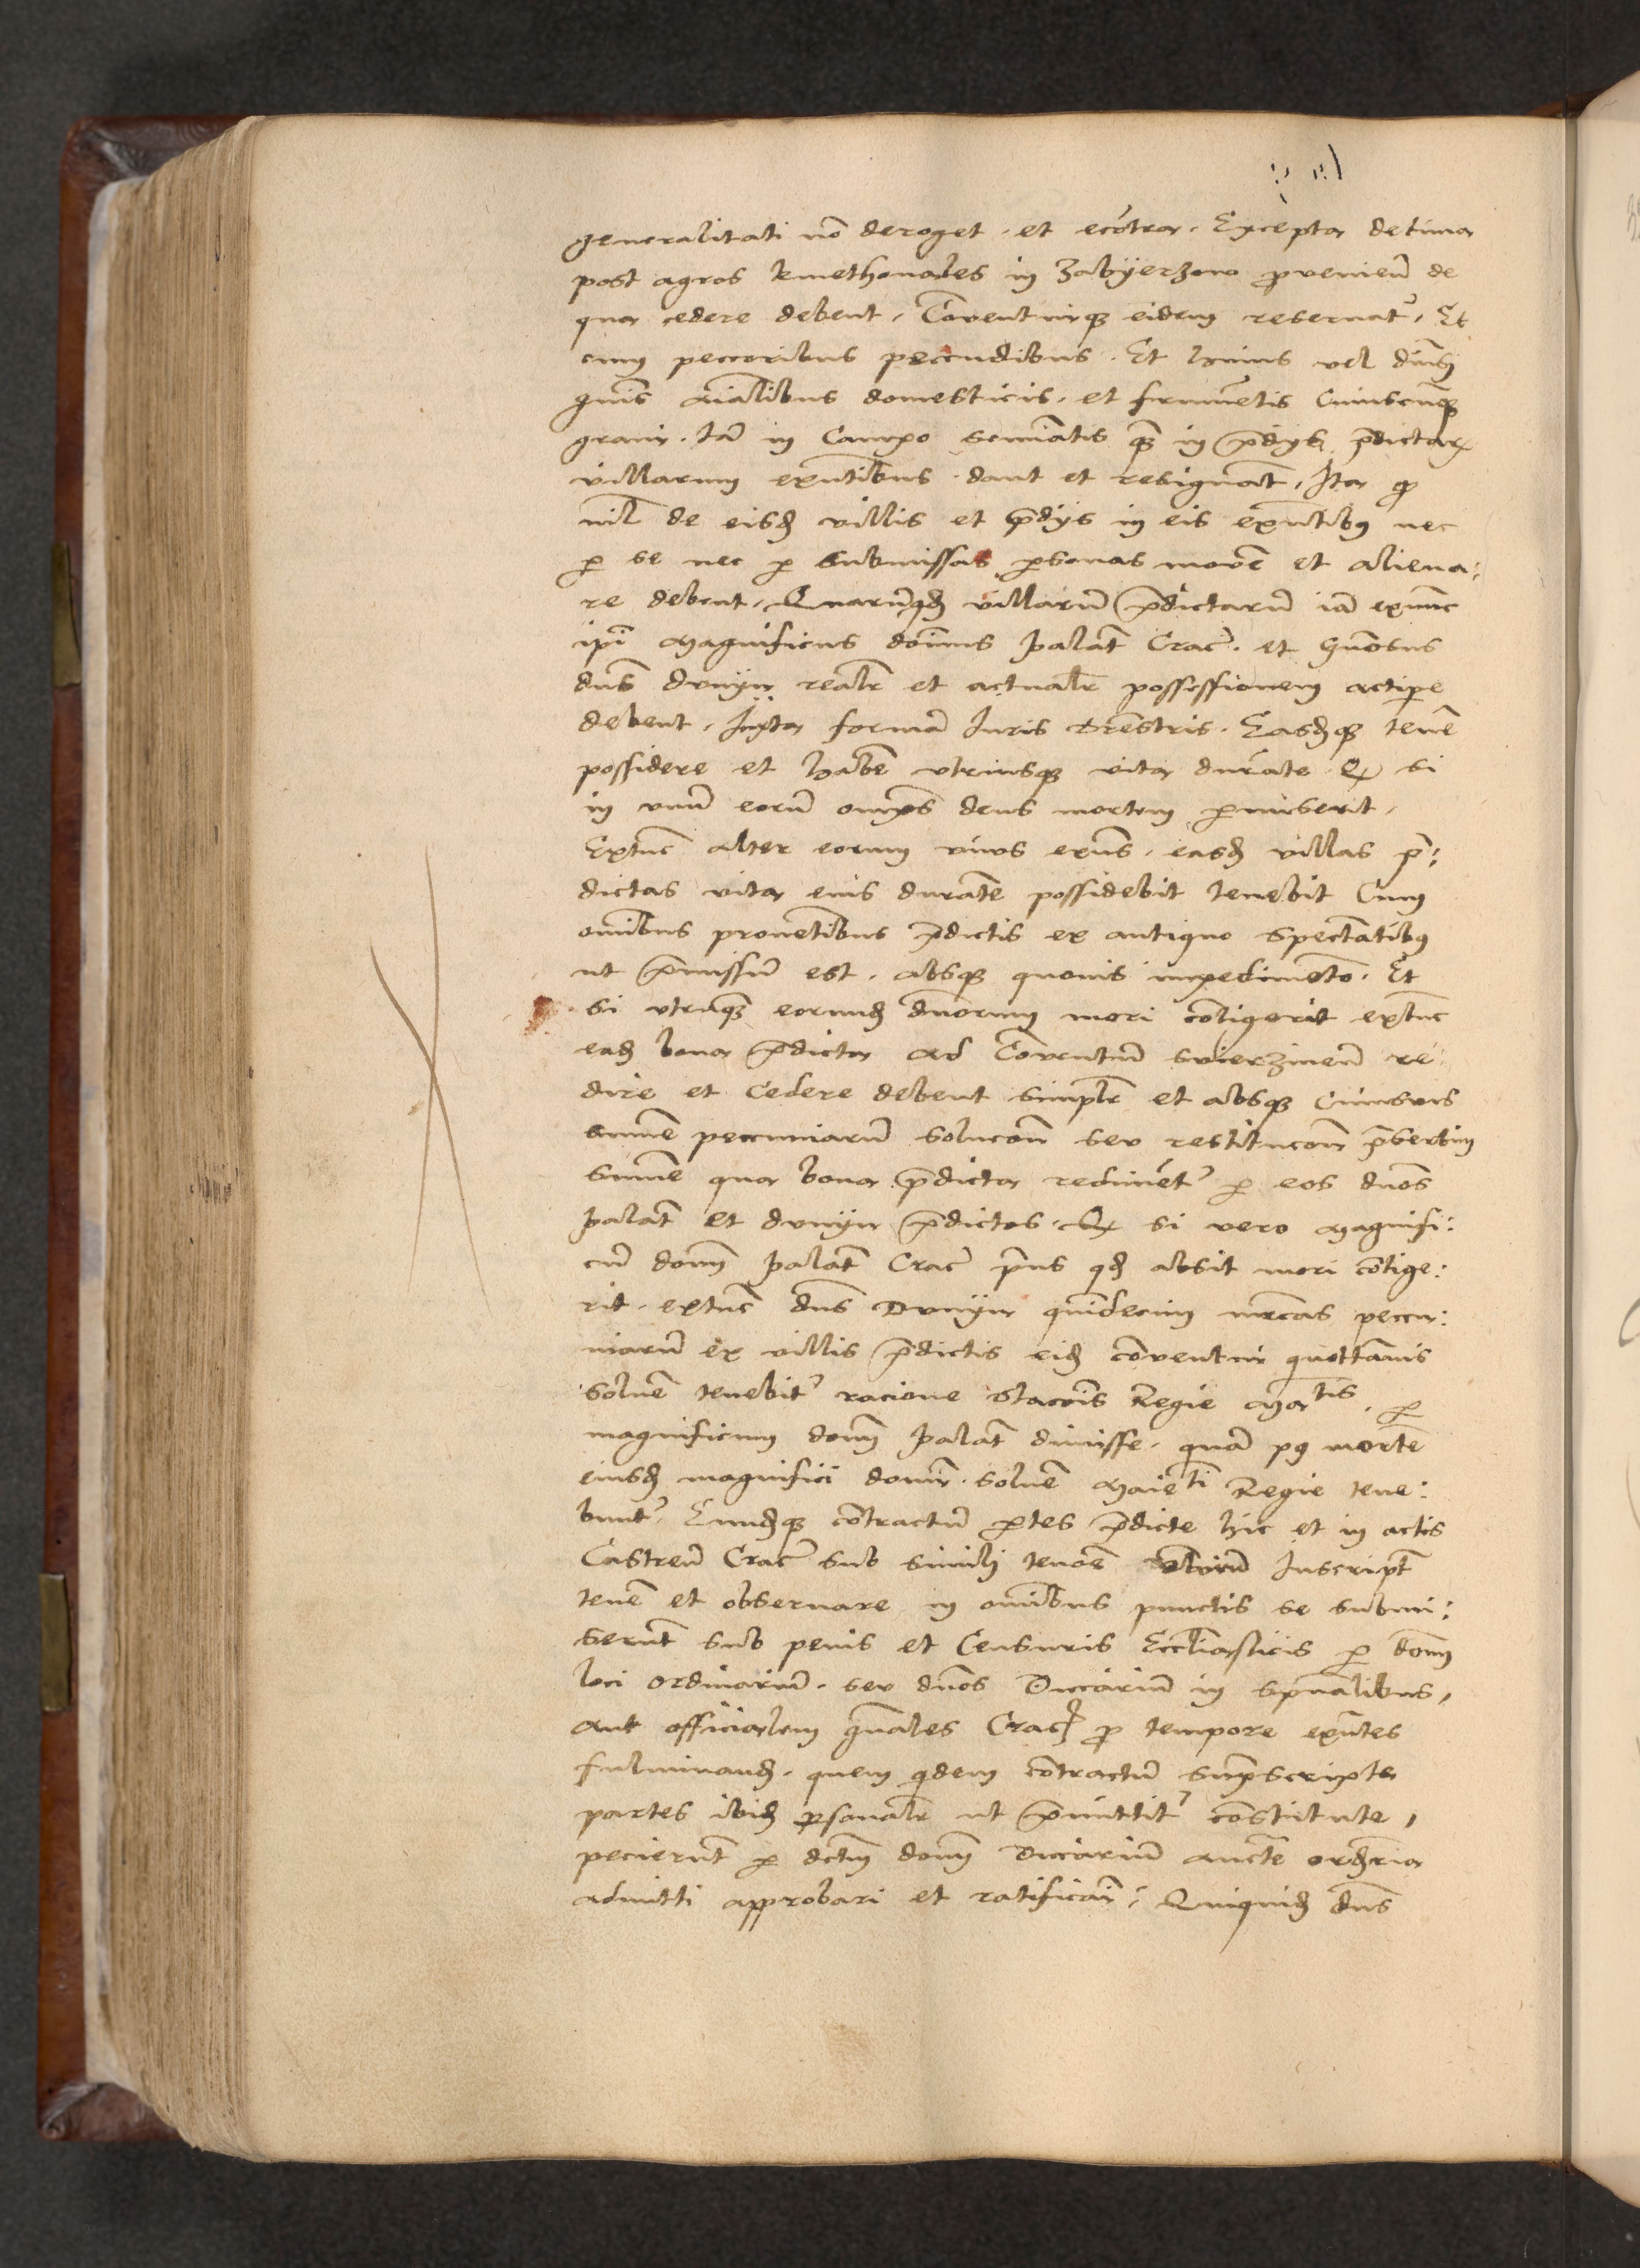 generalitati no deroget. et econtra. Excepta decima
post agros kmethonales in Zabyerzow provenien de
qua cedere debent, Conventuique eidem reservat, Et
cum peccoribus peccudibus. Et huius vel diversi
gnis aialibus domesticis. et frumetis Cuiuscunque
grani. ta in Campo seminatis qz in predys predictar
villarum exntibus. dant et resignat, Ita q
nil de eisd villis et predys in eis exntibus nec
per se nec per submissas personas movere et aliena:
re debent. Quarumqd villarum predictarum iam exnunc
ipi Magnificus dominus Palat Crac. et Generosus
dns realr et actualr possessionem accipere
debent, Iuxta forma Iuris trestris. Easdque tene
possidere et habere utriusque vita durate. Q si
in unum eorum omps deus mortem permiserit,
Extunc alter eorum vivus exns. easd villas pre:
dictas vita eius durante possidebit tenebit Cum
omnibus proventibus predictis ex antiquo spectatibus
ut premissum est. absque quovis impedimeto. Et
si utrunque eorund duorum mori contigerit extunc
ead bona predicta ad Conventum Svierzinen re
dire et cedere debent simplr et absque Cuiusvis
summe pecuniarum solucione seu restitucione presertim
summe qua bona predicta redimet per eos duos
Palat et predictos. Q si vero Magnifi:
cum dominum Palat Crac prius qd absit mori contige:
rit. extunc dns quindecim marcas pecu:
niarum ex villis predictis eid conventui quottannis
solvere tenebit racione stacionis Regie Matis. per
magnificum dominum Palat dimisse. quam post mortem
eiusd magnifici domini. solvere Maiesti Regie tene:
bunt. Eundque contractum partes predicte hic et in actis
Castren Crac sub simili tenore Inscript
tene et observare in omnibus punctis se submi:
serunt sub penis et Censuris Ecclesiasticis per domin
loci ordinarium. seu duos Vicarium in spualibus,
aut officialem gnales Crac pro tempore exntes
fulminand. quem quidem contractum suprascripte
partes ibid personalr ut premittit constitute,
pecierunt per dictum dominum Vicarium aucte ordria
admitti approbari et ratificari. Quiquid dns